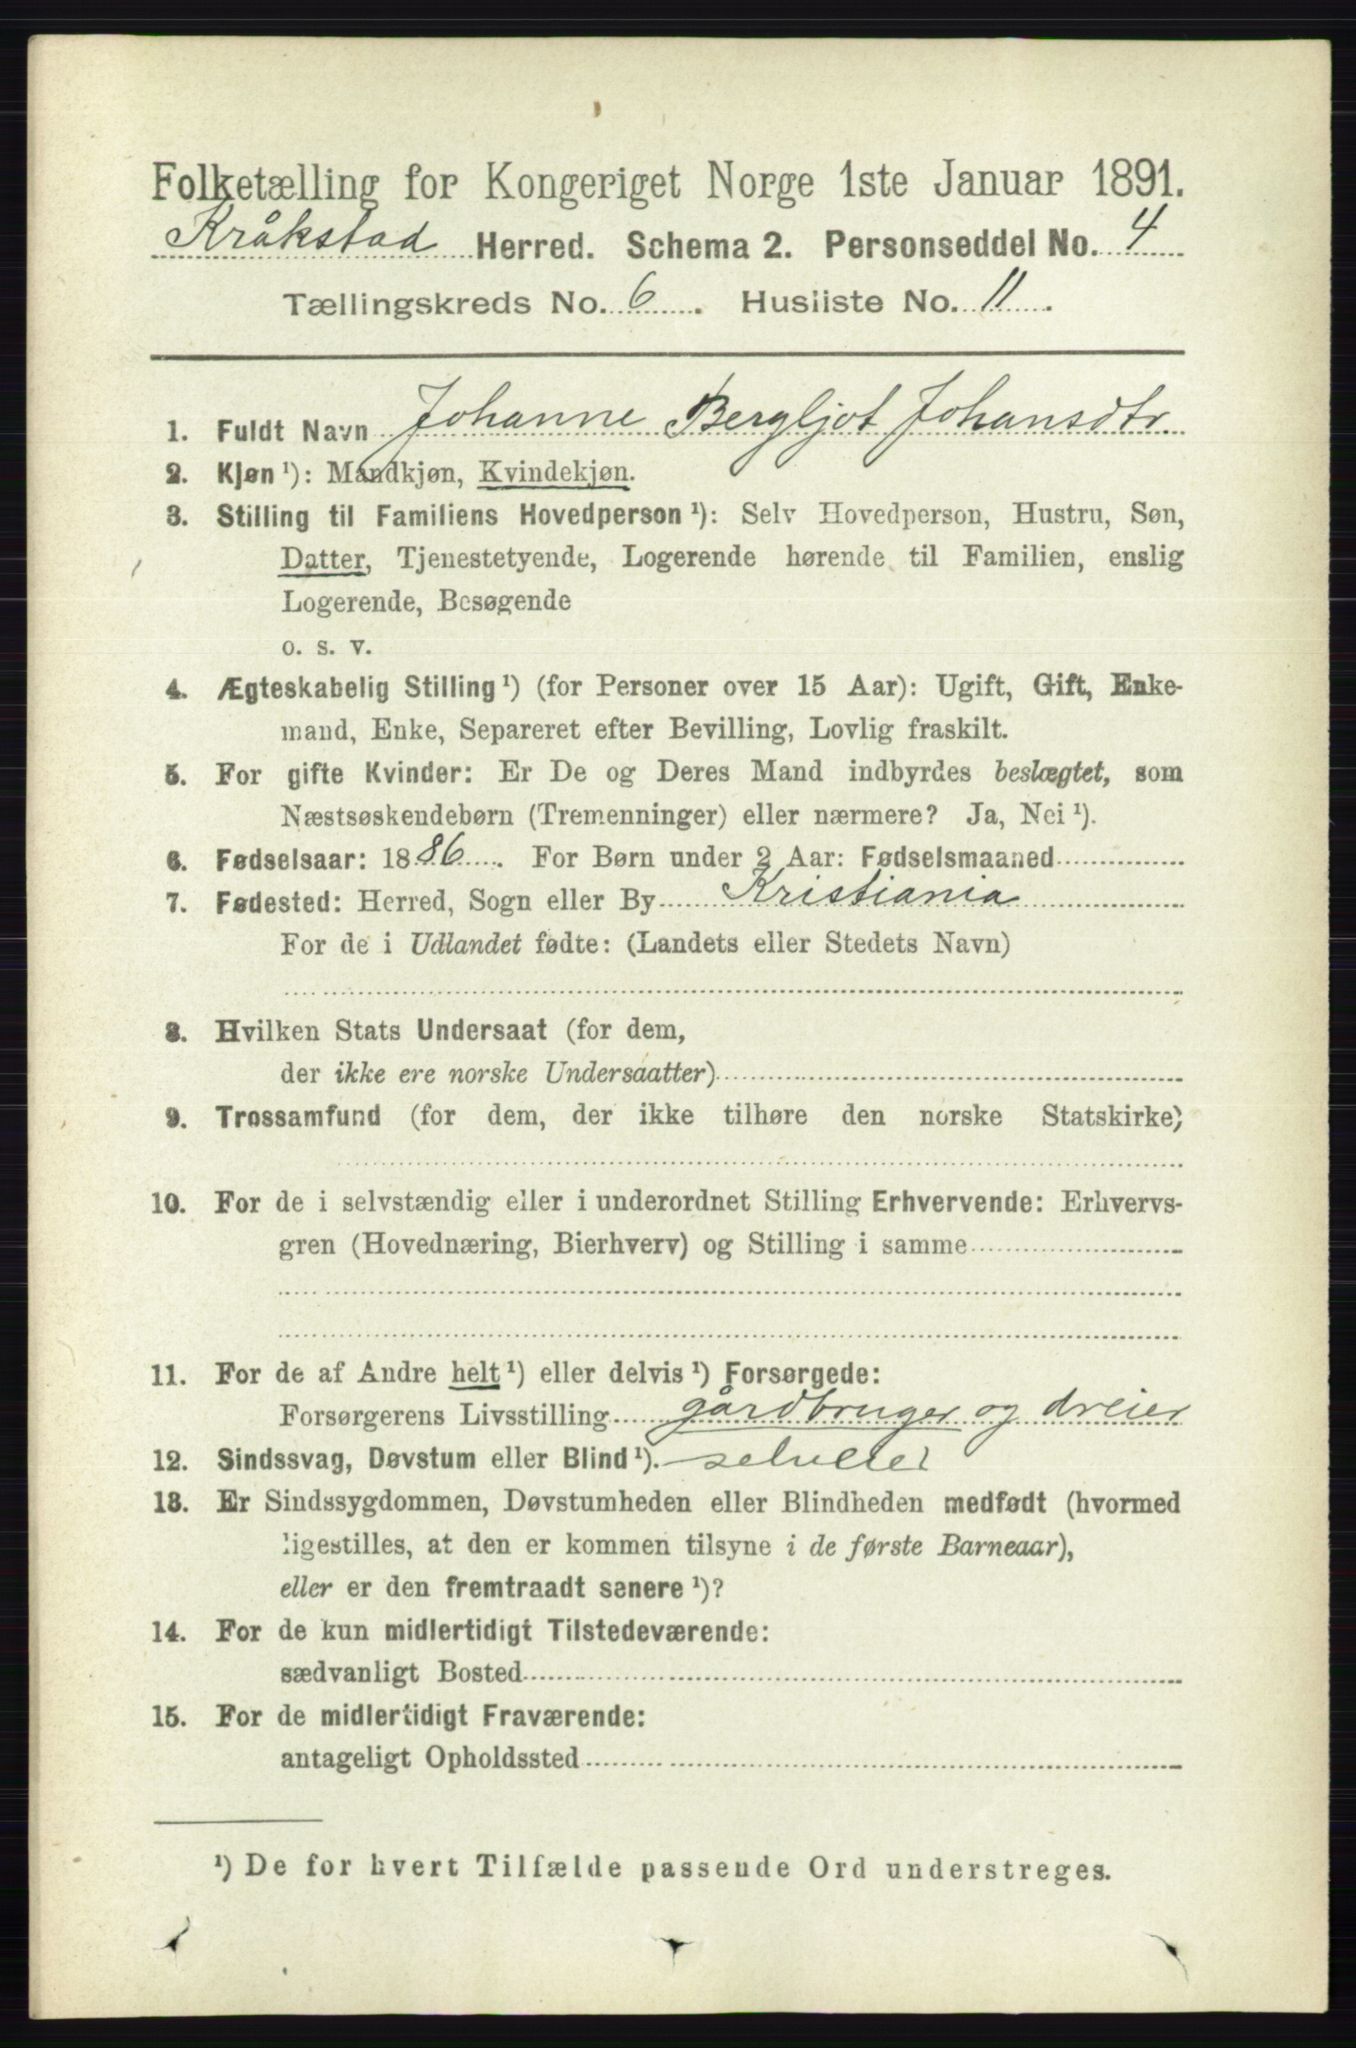 Folketælling for Kongeriget Norge 1ste Januar 1891.
Kråkstad Herred. Schema 2. Personseddel No. 4
Tællingskreds No. 6. Husliste No. 11.
1. Fuldt Navn Johanne Bergljot Johansdtr.
2. Kjøn ¹): Mandkjøn, Kvindekjøn.
3. Stilling til Familiens Hovedperson ¹): Selv Hovedperson, Hustru, Søn,
Datter, Tjenestetyende, Logerende hørende til Familien, enslig
Logerende, Besøgende
o. s. v.
4. Ægteskabelig Stilling ¹) (for Personer over 15 Aar): Ugift, Gift, Enke-
mand, Enke, Separeret efter Bevilling, Lovlig fraskilt.
5. For gifte Kvinder: Er De og Deres Mand indbyrdes beslægtet, som
Næstsøskendebørn (Tremenninger) eller nærmere? Ja, Nei ¹).
6. Fødselsaar: 1886. For Børn under 2 Aar: Fødselsmaaned
7. Fødested: Herred, Sogn eller By Kristiania
For de i Udlandet fødte: (Landets eller Stedets Navn)
8. Hvilken Stats Undersaat (for dem,
der ikke ere norske Undersaatter)
9. Trossamfund (for dem, der ikke tilhøre den norske Statskirke)
10. For de i selvstændig eller i underordnet Stilling Erhvervende: Erhvervs-
gren (Hovednæring, Bierhverv) og Stilling i samme
11. For de af Andre helt ¹) eller delvis ¹) Forsørgede:
Forsørgerens Livsstilling gårdbruger og dreier
12. Sindssvag, Døvstum eller Blind ¹). selveier
13. Er Sindssygdommen, Døvstumheden eller Blindheden medfødt (hvormed
ligestilles, at den er kommen tilsyne i de første Barneaar),
eller er den fremtraadt senere ¹)?
14. For de kun midlertidigt Tilstedeværende:
sædvanligt Bosted
15. For de midlertidigt Fraværende:
antageligt Opholdssted
¹) De for hvert Tilfælde passende Ord understreges.